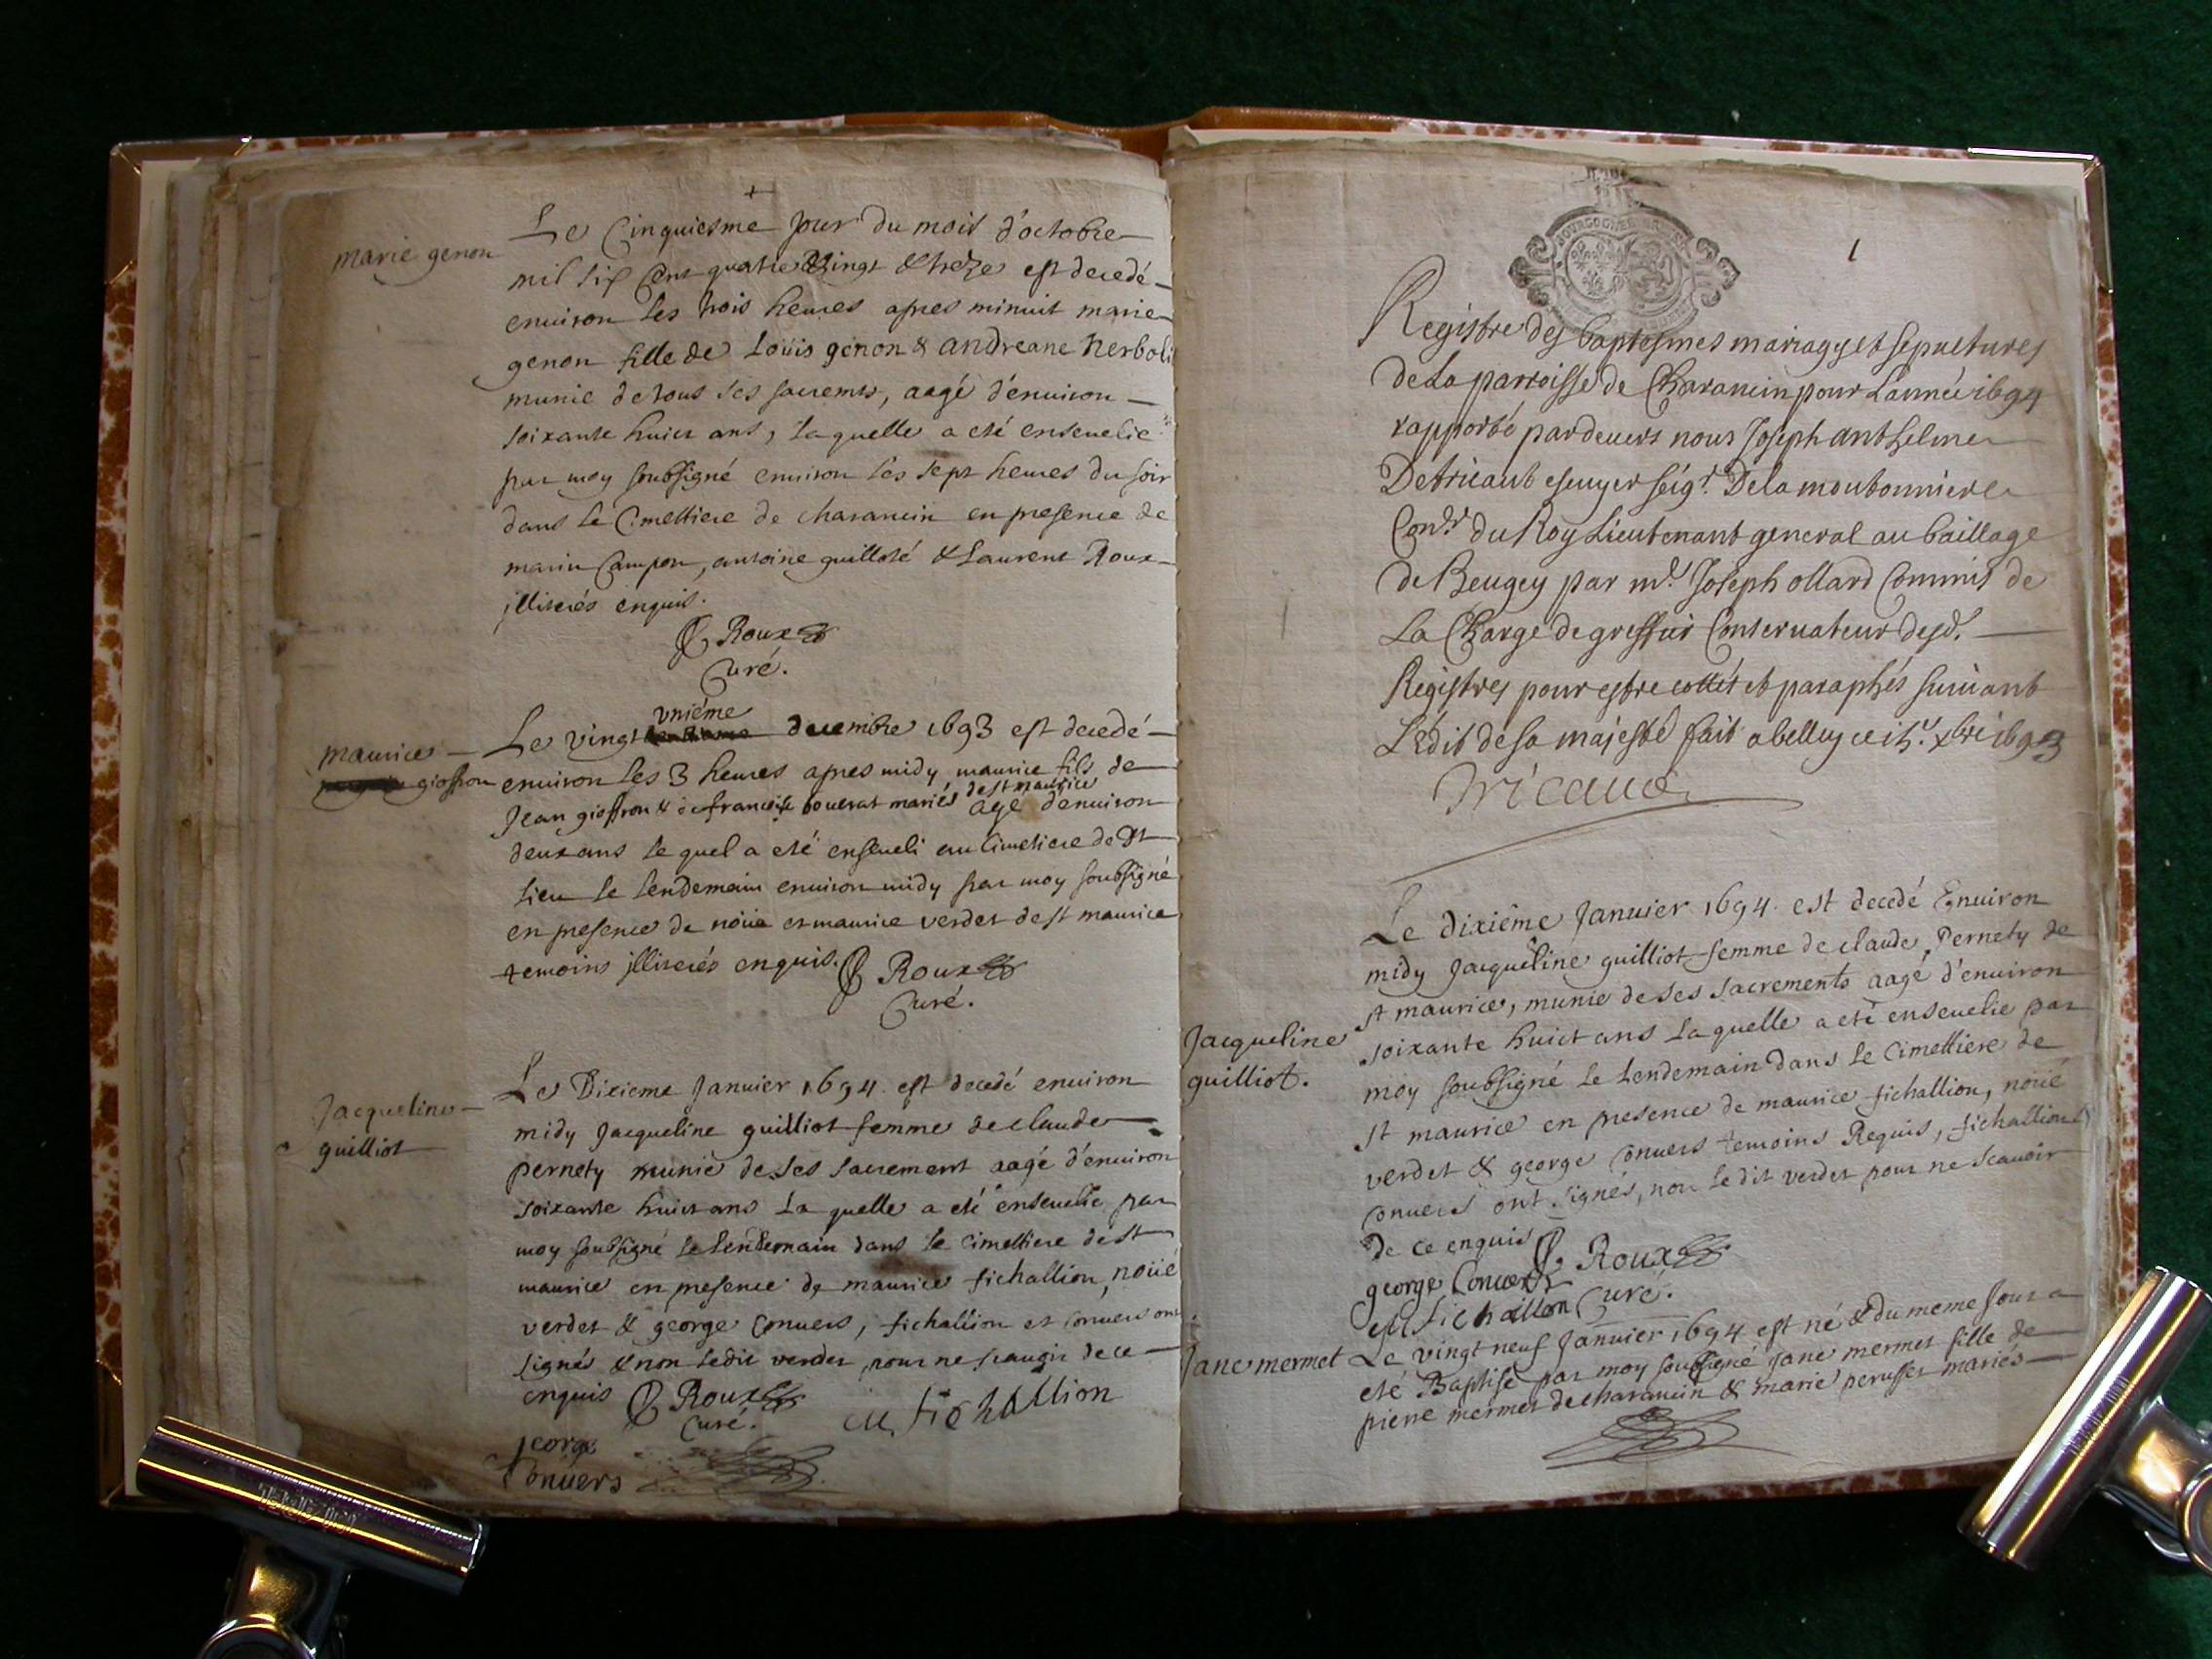 marie genon
Le Cinquiesme Jour du mois d'octobre
mil six Cent quatre Vingt & treze est decedé
enuiron les trois heures apres minuit marie
genon fille de Loüis genon & andreane
munie de tous ses sacremts, aagé d'enuiron
soixante huict ans, Laquelle a eté enseuelie
par moy soubsigné enuiron les sept heures du soir
dans le Cimettiere de charancin en presence de
marin Campon, antoine guilloté & Laurent Roux
illiterés enquis.
Roux
Curé.
maurice
gioffron
vniéme
Le vingt decembre 1693 est decedé
enuiron les 3 heures apres midy maurice fils de
de st maurice
Jean gioffron & de francoise bouerat mariés agé d'enuiron
deux ans le quel a eté enseueli au Cimetiere de
lieu le lendemain enuiron midy par moy soubsigné
en presence de noüé et maurice verdet de st maurice
temoins illiterés enquis. Roux
Curé.
Jacqueline
guilliot
Le Dixieme Januier 1694. est decedé enuiron
midy Jacqueline guilliot femme de claude
pernety munie de ses sacrement aagé d'enuiron
soixante huict ans La quelle a eté enseuelie par
moy soubsigné le lendemain dans le cimettiere de st
maurice en presence de maurice fichallion, noüé
verdet & george Conuers, fichallion et Conuers ont
signés & non ledit verdet pour ne scauoir de ce
enquis Roux
Curé.
fichallion
george
Conuers
BOURGOGNE
1
Registre des baptesmes mariages et sepultures
de La parroisse de Charancin pour L'année 1694
rapporté pardeuers nous Joseph anthelme
Detricaut escuyer seigr. De la moutonniere
Conser du Roy Lieutenant general au baillage
de Beugey par me. Joseph ollard Commis de
La Charge de greffier Conseruateur desd.
Registres pour estre cottés et paraphés suiuant
L'édit de sa majesté fait a belley ce xbre 1693
Tricaud
Jacqueline
guilliot.
Le dixiême Januier 1694. est decedé Enuiron
midy Jacquêline guilliot femme de claude Pernety de
st maurice, munie de ses sacrements aagé d'enuiron
soixante huict ans La quelle a eté enseuelie par
moy soubsigné le lendemain dans le Cimettiere de
st maurice en presence de maurice fichallion, noüé
verdet & george Conuers temoins Requis, fichallion &
Conuers ont signés, non le dit verdet pour ne scauoir
de ce enquis Roux
george Conuers
fichallion Curé.
Jane mermet
Le vingt neuf Januier 1694 est né & du meme Jour a
eté Baptisé par moy soubsigné Jane mermet fille de
pierre mermet de charancin & marie perusset mariés